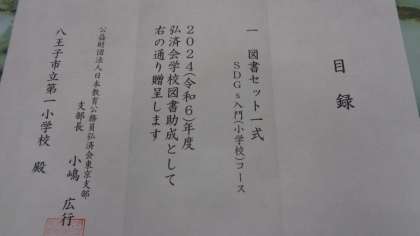 目録
一 図書セット一式
SDGs入門(小学校)コース
2024(令和6)年度
弘済会学校図書助成として
右の通り贈呈します
公益財団法人日本教育公務員弘済会東京支部
支部長 小嶋 広行
八王子市立第一小学校 殿